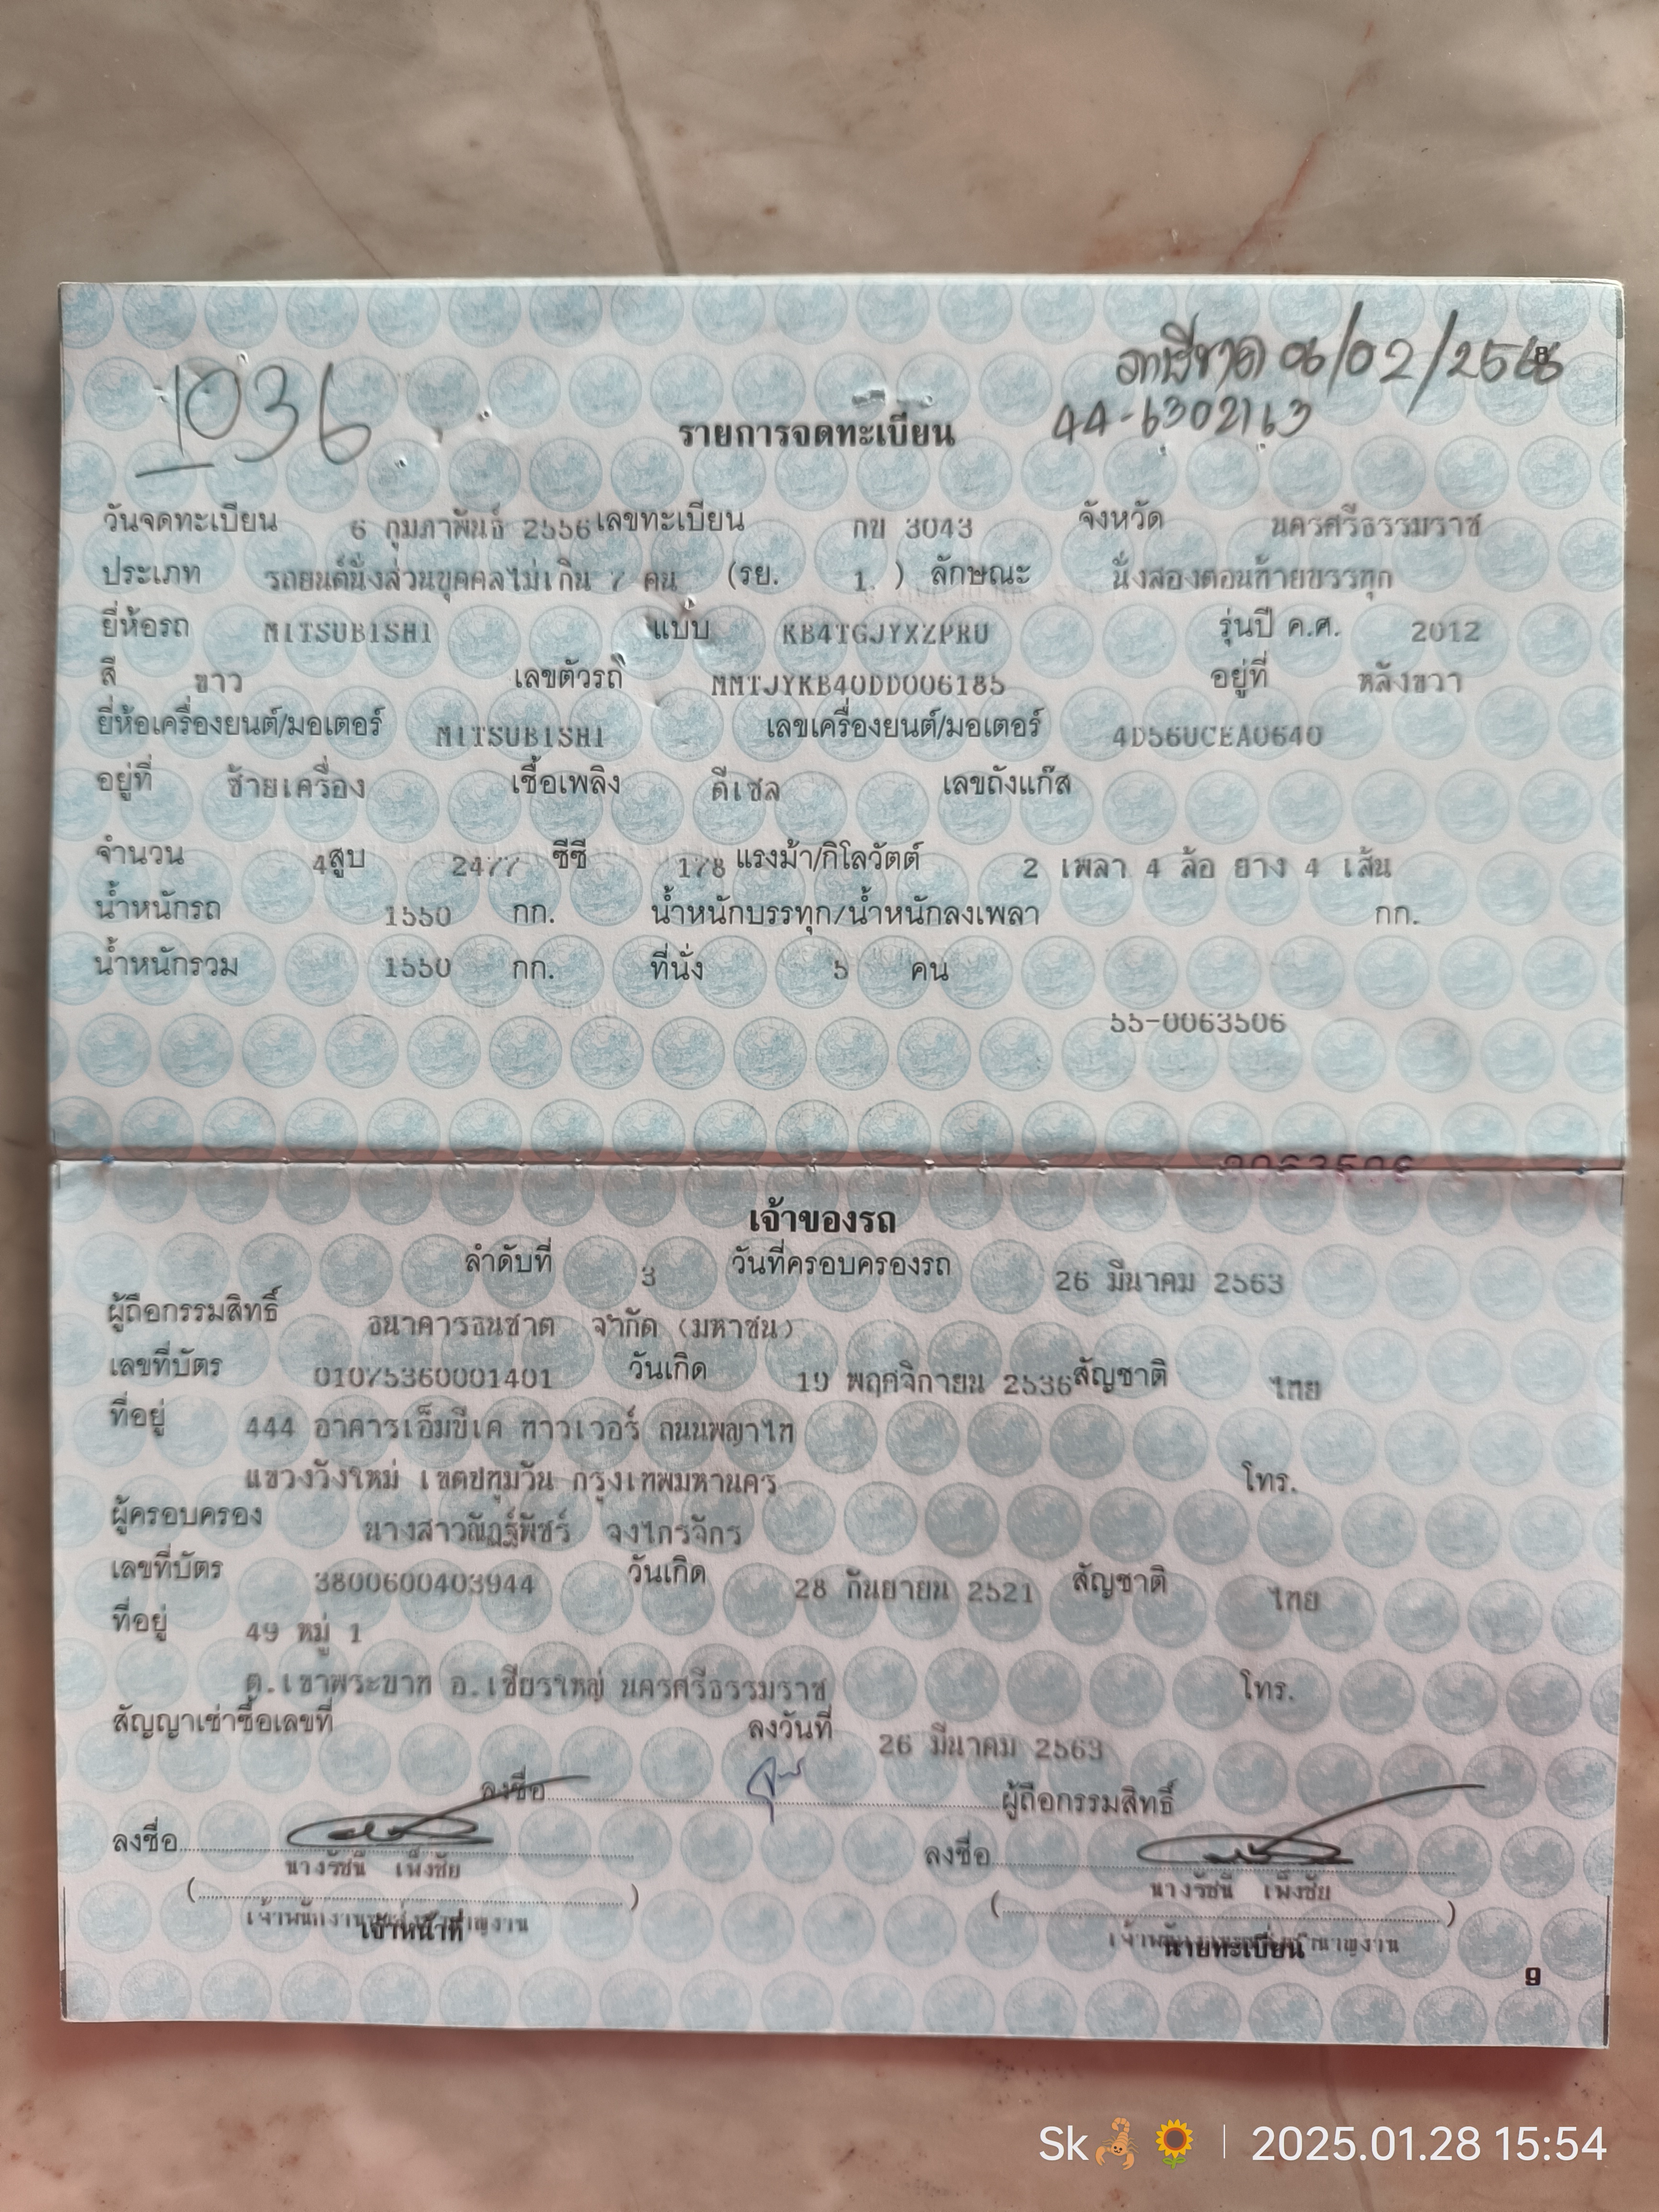 1036
06/02/2568
44-6302163
8
รายการจดทะเบียน
วันจดทะเบียน 6 กุมภาพันธ์ 2556 เลขทะเบียน กข 3043 จังหวัด นครศรีธรรมราช
ประเภท รถยนต์นั่งส่วนบุคคลไม่เกิน 7 คน (รย. 1 ) ลักษณะ นั่งสองตอนท้ายบรรทุก
ยี่ห้อรถ MITSUBISHI แบบ KB4TGJYXZPRU รุ่นปี ค.ศ. 2012
สี ขาว เลขตัวรถ MMTJYKB40DD006185 อยู่ที่ หลังขวา
ยี่ห้อเครื่องยนต์/มอเตอร์ MITSUBISHI เลขเครื่องยนต์/มอเตอร์ 4D56UCEA0640
อยู่ที่ ซ้ายเครื่อง เชื้อเพลิง ดีเซล เลขถังแก๊ส
จำนวน 4 สูบ 2477 ซีซี 178 แรงม้า/กิโลวัตต์ 2 เพลา 4 ล้อ ยาง 4 เส้น
น้ำหนักรถ 1550 กก. น้ำหนักบรรทุก/น้ำหนักลงเพลา กก.
น้ำหนักรวม 1550 กก. ที่นั่ง 5 คน
55-0063506
0063506
เจ้าของรถ
ลำดับที่ 3 วันที่ครอบครองรถ 26 มีนาคม 2563
ผู้ถือกรรมสิทธิ์ ธนาคารธนชาต จำกัด (มหาชน)
เลขที่บัตร 01075360001401 วันเกิด 19 พฤศจิกายน 2536 สัญชาติ ไทย
ที่อยู่ 444 อาคารเอ็มบีเค ทาวเวอร์ ถนนพญาไท
แขวงวังใหม่ เขตปทุมวัน กรุงเทพมหานคร โทร.
ผู้ครอบครอง นางสาวณัฏฐ์พัชร์ จงไกรจักร
เลขที่บัตร 3800600403944 วันเกิด 28 กันยายน 2521 สัญชาติ ไทย
ที่อยู่ 49 หมู่ 1
ต.เขาพระบาท อ.เชียรใหญ่ นครศรีธรรมราช โทร.
สัญญาเช่าซื้อเลขที่ ลงวันที่ 26 มีนาคม 2563
ลงชื่อ ผู้ถือกรรมสิทธิ์
ลงชื่อ ลงชื่อ
นางรัชนี เพ็งชัย นางรัชนี เพ็งชัย
( ) ( )
เจ้าหน้าที่ นายทะเบียน
9
Sk | 2025.01.28 15:54